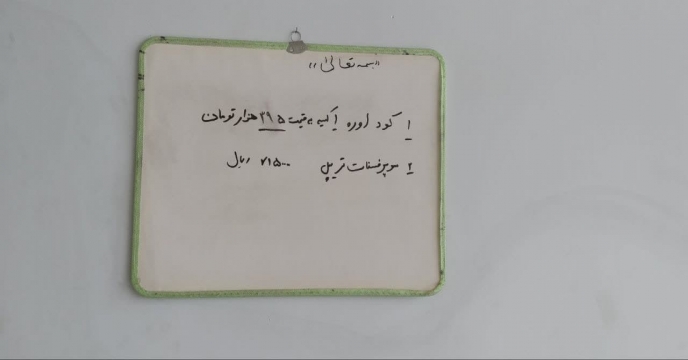 "بسمه تعالی"
۱ کود اوره ۱ کیسه به قیمت ۳۹۵ هزار تومان
۲ سوپر فسفات تریپل ۷۱۵۰۰۰ ریال